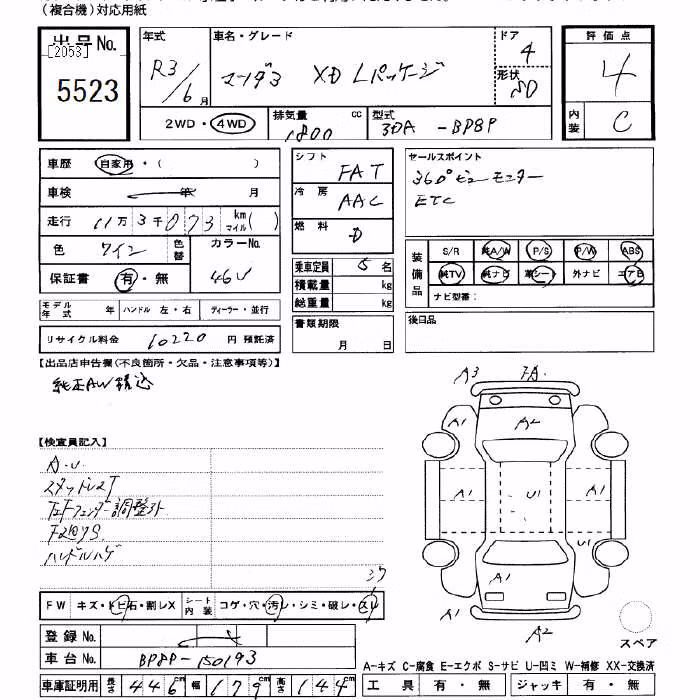 (複合機)対応用紙
出品No.
[2053]
5523
年式 R3/6月
車名・グレード マツダ3 XD Lパッケージ
ドア 4
形状 SD
2WD・4WD
排気量 1800 cc
型式 3DA-BP8P
評価点 4
内装 C
車歴 自家用・( )
車検 年 月
走行 11万3千073 km マイル( )
色 ワイン 色替
カラーNo. 46V
保証書 有・無
モデル年式 年 ハンドル 左・右 ディーラー・並行
リサイクル料金 10220 円 預託済
シフト FAT
冷房 AAC
燃料 D
乗車定員 5名
積載量 kg
総重量 kg
書類期限 月 日
セールスポイント
360°ビューモニター
ETC
装備品
S/R 純A/W P/S P/W ABS
純TV 純ナビ 革シート 外ナビ エアB
ナビ型番:
後日品
【出品店申告欄(不良箇所・欠品・注意事項等)】
純正AW積込
【検査員記入】
A.U.
スタッドレスT
ハンドルハゲ
FW キズ・トビ石・割レX
シート内装 コゲ・穴・汚レ・シミ・破レ・スレ
登録No.
車台No. BP8P-150193
車庫証明用 長さ 446cm 幅 179cm 高さ 144cm
A3
A1
A2
A1
A1
U1
A1
A1
U1
A1
A1
A2
スペア
A-キズ C-腐食 E-エクボ S-サビ U-凹ミ W-補修 XX-交換済
工具 有・無 ジャッキ 有・無